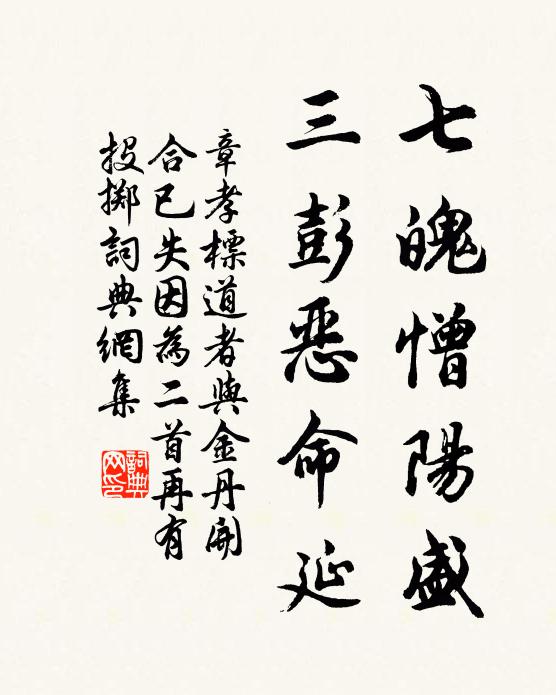 七魄憎陽盛
三彭惡命延
章孝標道者與金丹開
合已失因為二首再有
投擲詞典網集
詞典网印